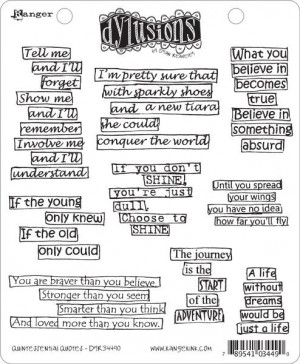 Ranger
dylusions
BY DYAN REAVELEY
Tell me
and I'll
forget
Show me
and I'll
remember
Involve me
and I'll
understand
I'm pretty sure that
with sparkly shoes
and a new tiara
she could
conquer the world
What you
believe in
becomes
true
Believe in
something
absurd
If you don't
SHINE,
you're just
dull.
Choose to
SHINE
Until you spread
your wings
you have no idea
how far you'll fly
If the young
only knew
If the old
only could
The journey
is the
START
of the
ADVENTURE
You are braver than you believe.
Stronger than you seem
Smarter than you think
And loved more than you know.
A life
without
dreams
would be
just a life
QUINTESSENTIAL QUOTES - DYR34490
WWW.RANGERINK.COM
7 89541 03449